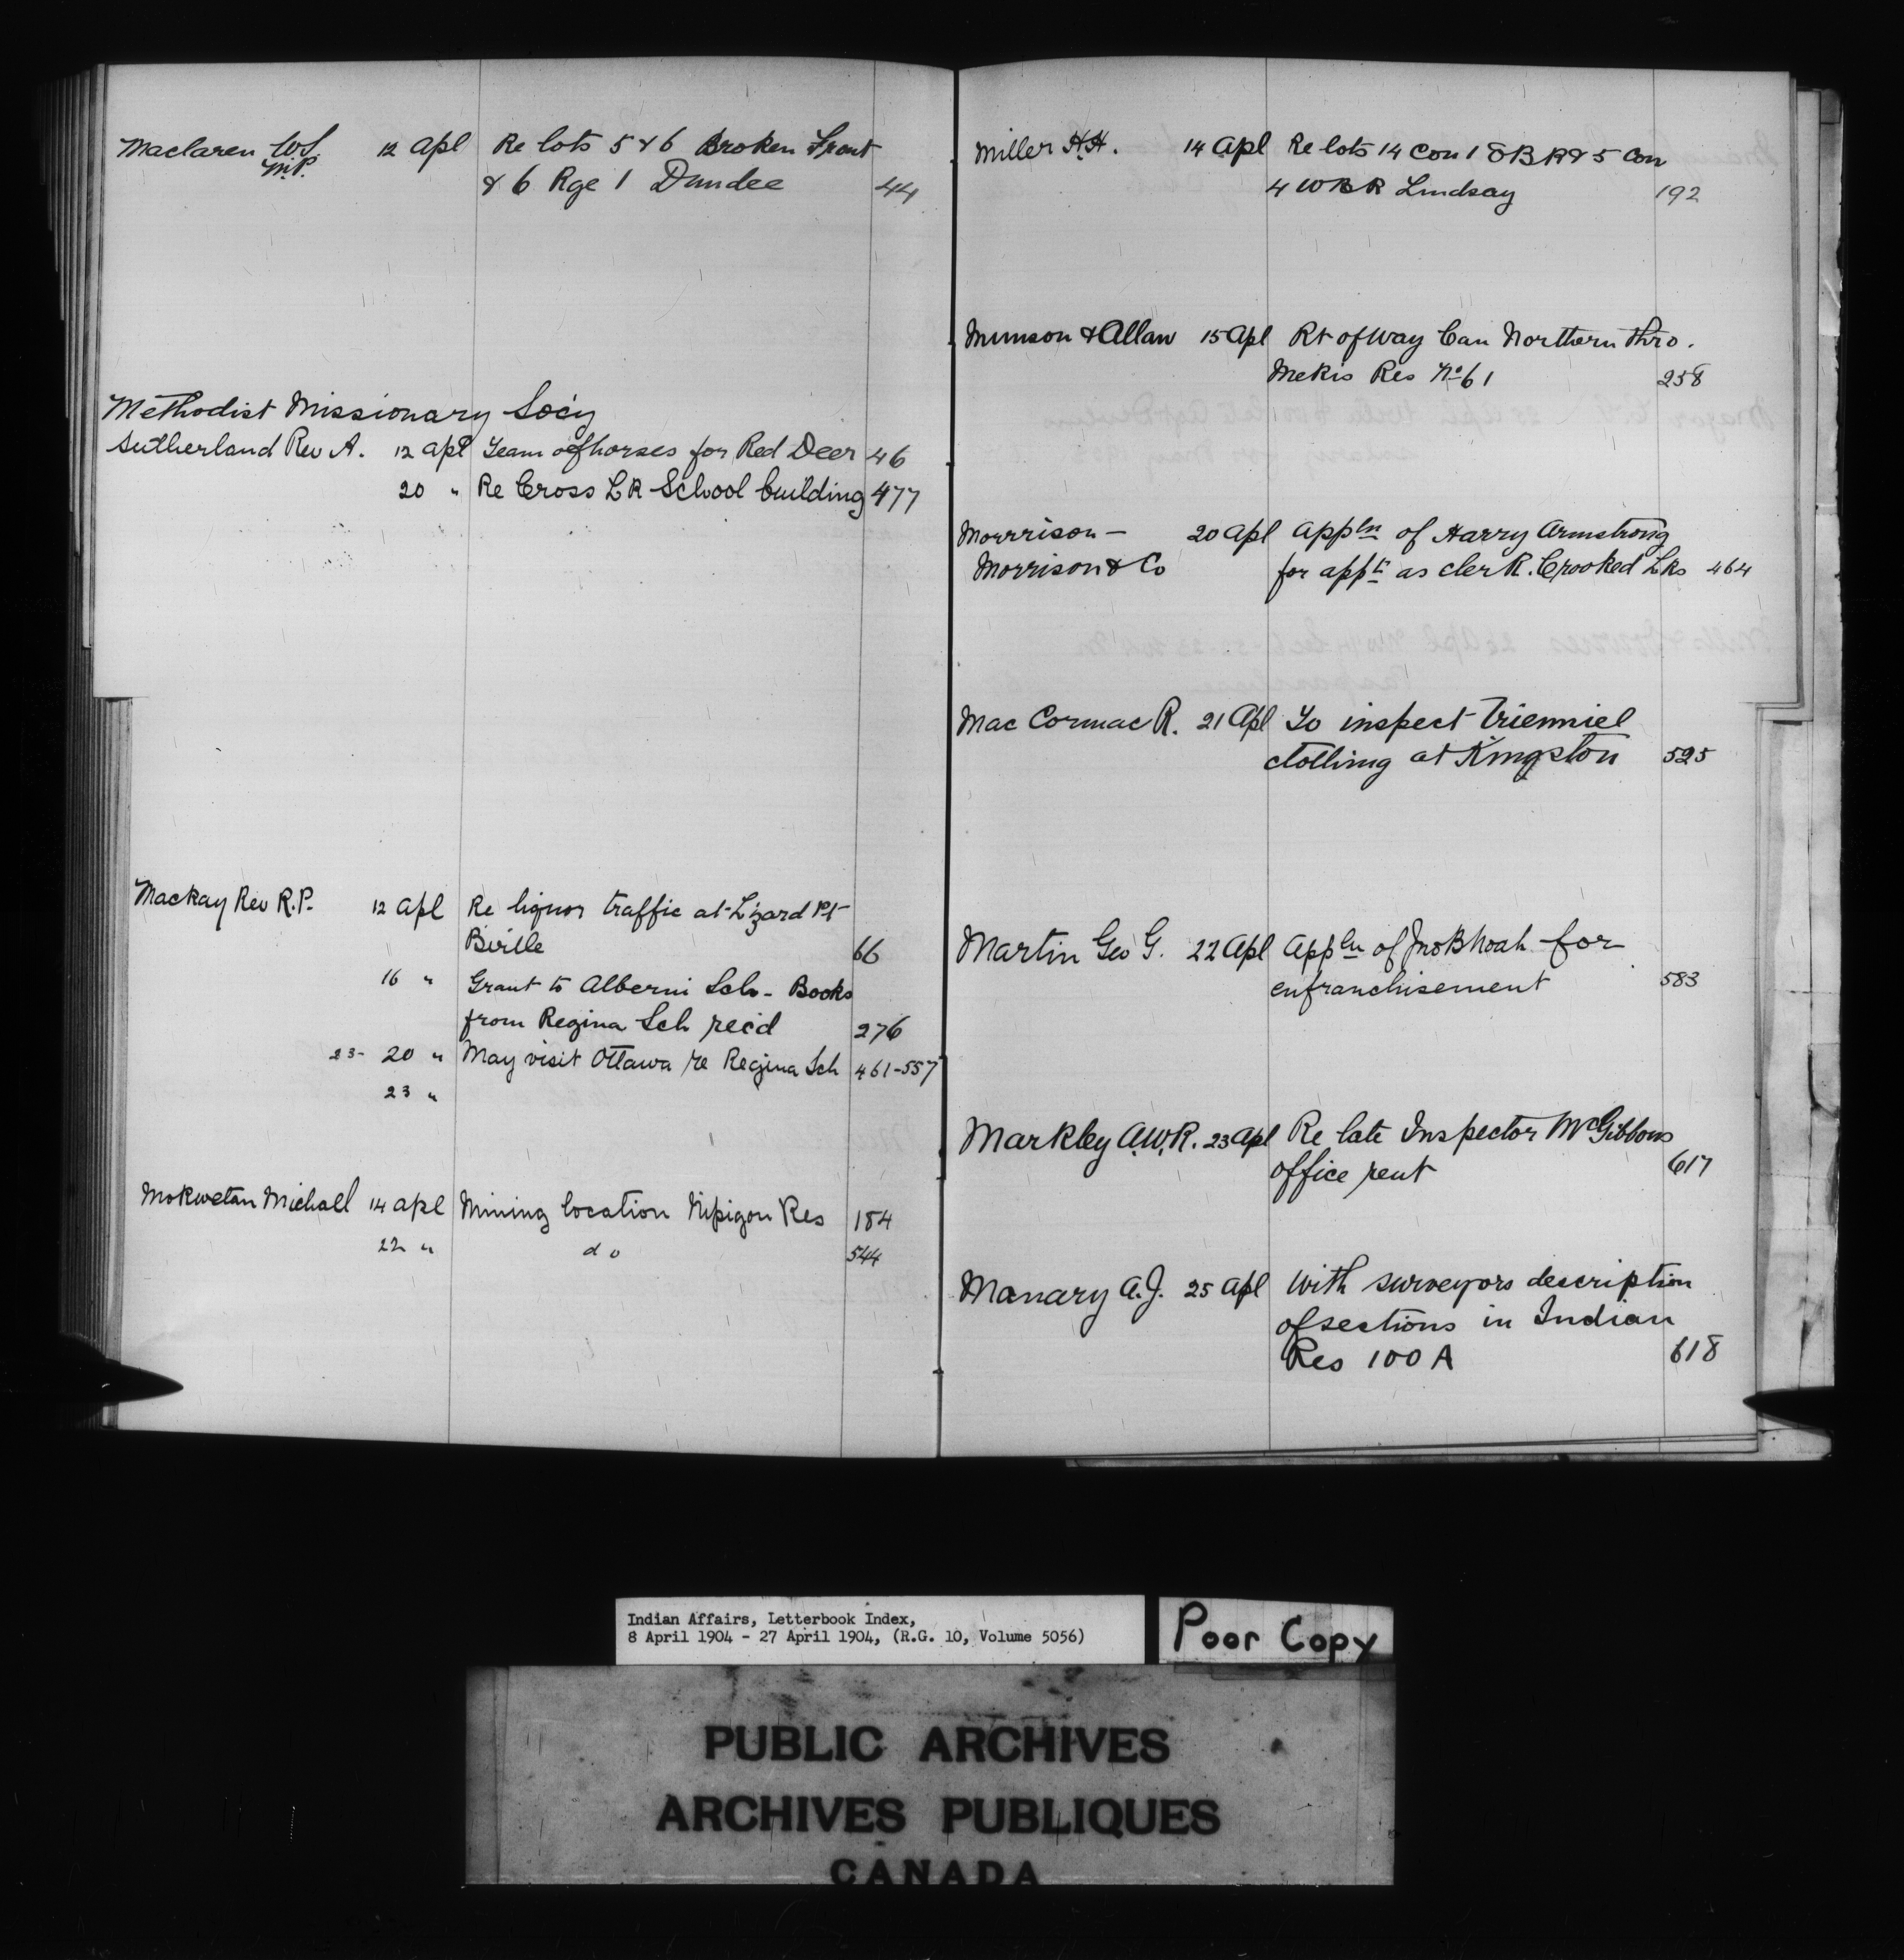 Maclaren W.S. 12 Apl Re lots 5 & 6 Broken Front
M.P. & 6 Rge 1 Dundee 44
Methodist Missionary Soc'y
Sutherland Rev A. 12 Apl Team of horses for Red Deer 46
20 " Re Cross LR School building 477
Mackay Rev R.P. 12 Apl Re liquor traffic at Lizard Pt
Birtle 66
16 " Grant to Alberni Sch - Books
from Regina Sch rec'd 276
23- 20 " May visit Ottawa re Regina Sch 461-557
23 "
Mokwetan Michael 14 Apl Mining location Nipigon Res 184
22 " do 544
Miller H.H. 14 Apl Re lots 14 Con 1 & 5 Con
4 WBR Lindsay 192
Munson & Allan 15 Apl Rt of Way Can Northern thro.
Mekis Res No 61 258
Morrrison — 20 Apl Appln of Harry Armstrong
Morrison & Co for appt as clerk. Crooked Lks 464
Mac Cormac R. 21 Apl To inspect trienniel
clothing at Kingston 525
Martin Geo G. 22 Apl Appln of Jno B Noah for
enfranchisement 583
Markley A.W.R. 23 Apl Re late Inspector McGibbons
office rent 617
Manary A.J. 25 Apl With surveyors description
of sections in Indian
Res 100 A 618
Indian Affairs, Letterbook Index,
8 April 1904 - 27 April 1904, (R.G. 10, Volume 5056)
Poor Copy
PUBLIC ARCHIVES
ARCHIVES PUBLIQUES
CANADA